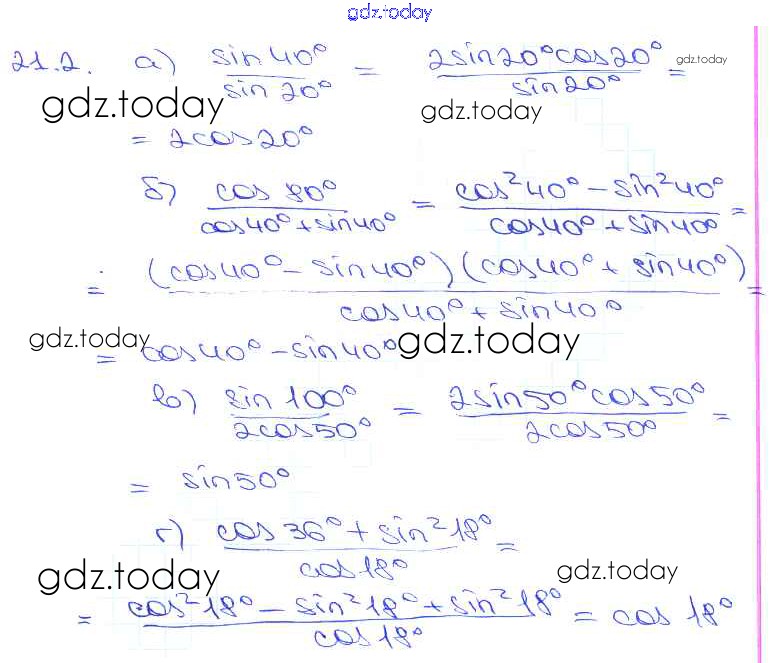 gdz.today
21.2. а) sin 40° / sin 20° = 2sin20°cos20° / sin20° = gdz.today
gdz.today gdz.today
= 2cos20°
б) cos 80° / cos40° + sin40° = cos²40° - sin²40° / cos40° + sin40° =
= (cos40° - sin40°)(cos40° + sin40°) / cos40° + sin40° =
gdz.today = cos40° - sin40° gdz.today
в) sin 100° / 2cos50° = 2sin50°cos50° / 2cos50° =
= sin50°
г) cos 36° + sin²18° / cos18° =
gdz.today gdz.today
= cos²18° - sin²18° + sin²18° / cos18° = cos 18°